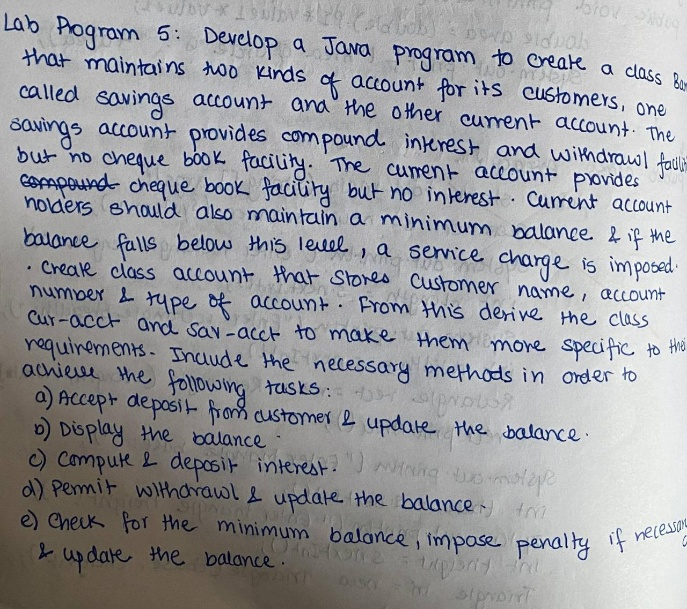 Lab Program 5: Develop a Java program to create a class Ban
that maintains two kinds of account for its customers, one
called savings account and the other current account. The
savings account provides compound interest and withdrawl facilit
but no cheque book facility. The current account provides
compound cheque book facility but no interest. Current account
holders should also maintain a minimum balance & if the
balance falls below this level, a service charge is imposed.
. Create class account that stores customer name, account
number & type of account. From this derive the class
cur-acct and sav-acct to make them more specific to thei
requirements. Include the necessary methods in order to
achieve the following tasks:
a) Accept deposit from customer & update the balance.
b) Display the balance.
c) Compute & deposit interest.
d) Permit withdrawl & update the balance.
e) Check for the minimum balance, impose penalty if necessar
& update the balance.